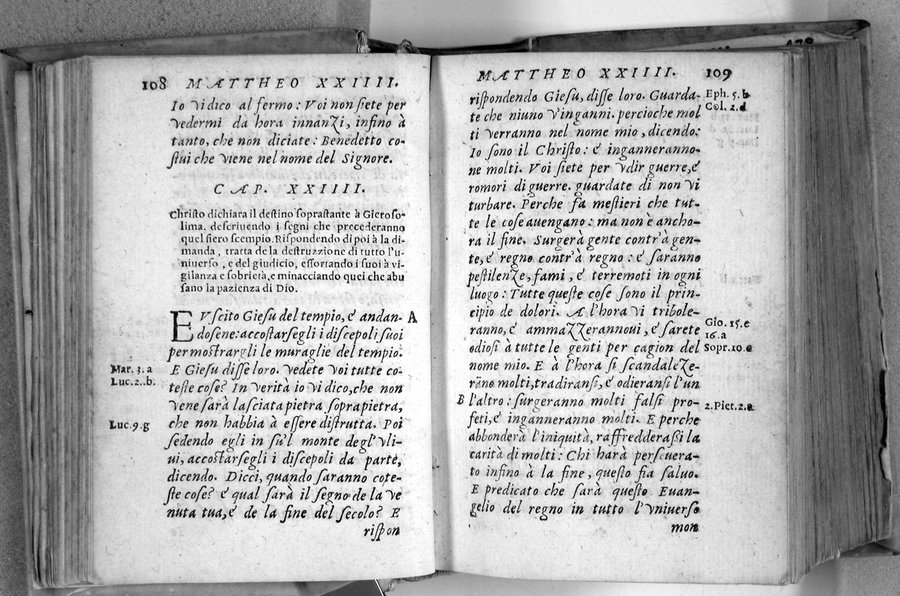 108 MATTHEO XXIIII.
Io vi dico al fermo: Voi non siete per
vedermi da hora innanzi, infino à
tanto, che non diciate: Benedetto co-
stui che viene nel nome del Signore.
CAP. XXIIII.
Christo dichiara il destino soprastante à Gierosolima, descriuendo i segni che precederanno
quel fiero scempio. Rispondendo di poi à la di-
manda, tratta de la destruzzione di tutto l'u-
niuerso, e del giudicio, essortando i suoi à vi-
gilanza e sobrietà, e minacciando quei che abu
sano la pazienza di Dio.
EVscito Giesu del tempio, é andan- A
dosene: accostarsegli i discepoli suoi
per mostrargli le muraglie del tempio.
Mar. 3. a E Giesu disse loro. Vedete voi tutte co-
Luc. 2. b. teste cose? In verità io vi dico, che non
vene sarà lasciata pietra sopra pietra,
Luc. 9. g che non habbia à essere distrutta. Poi
sedendo egli in su'l monte degl'vli-
ui, accostarsegli i discepoli da parte,
dicendo. Dicci, quando saranno cote-
ste cose? é qual sarà il segno de la ve
nuta tua, é de la fine del secolo? E
rispon
MATTHEO XXIIII. 109
rispondendo Giesu, disse loro. Guarda- Eph. 5. b
te che niuno v'inganni. percioche mol Col. 2. d
ti verranno nel nome mio, dicendo:
Io sono il Christo: é inganneranno-
ne molti. Voi siete per vdir guerre, é
romori di guerre. guardate di non vi
turbare. Perche fa mestieri che tut-
te le cose auengano: ma non è ancho-
ra il fine. Surgerà gente contr'à gen-
te, é regno contr'à regno: é saranno
pestilenze, fami, é terremoti in ogni
luogo: Tutte queste cose sono il prin-
cipio de dolori. A l'hora vi tribole-
ranno, é ammazzerannoui, é sarete Gio. 15. e
16. a
odiosi à tutte le genti per cagion del Sopr. 10. c
nome mio. E à l'hora si scandaleze-
rāno molti, tradiransi, é odieransi l'un
B l'altro: surgeranno molti falsi pro- 2. Piet. 2. a
feti, é inganneranno molti. E perche
abbonderà l'iniquità, raffredderassi la
carità di molti: Chi harà perseuera-
to infino à la fine, questo fia saluo.
E predicato che sarà questo Euan-
gelio del regno in tutto l'vniuerso
mon